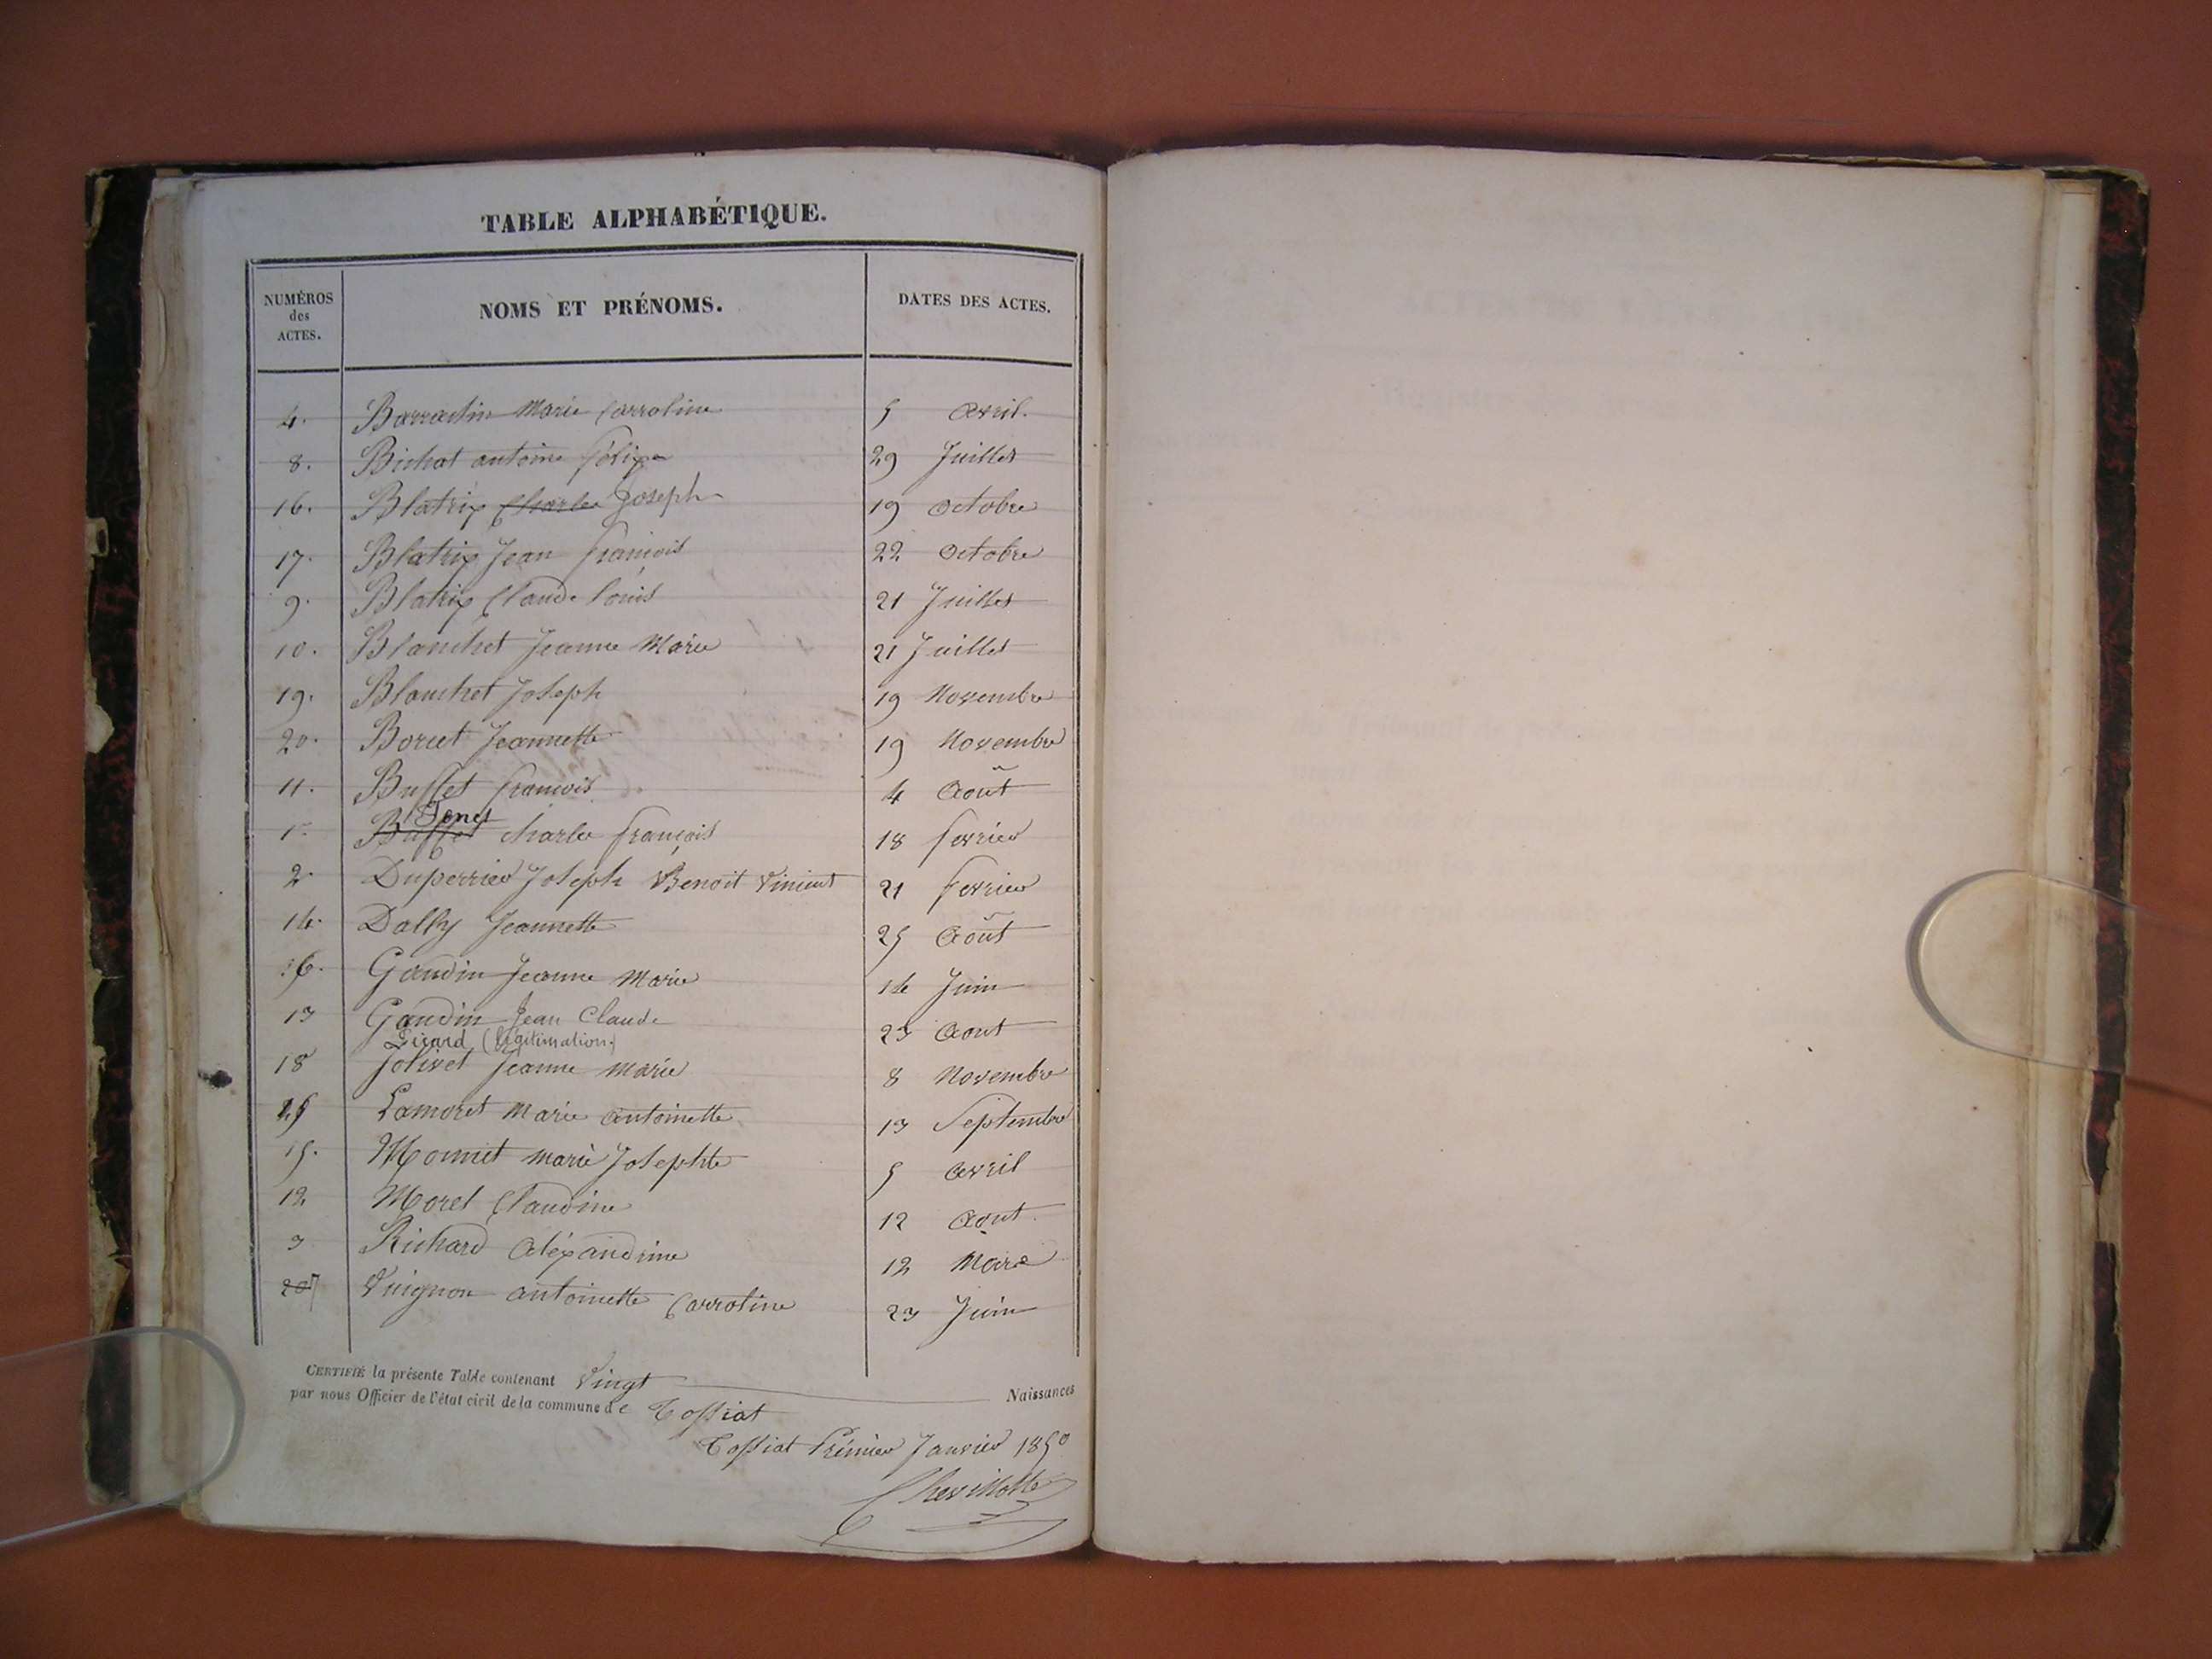 TABLE ALPHABÉTIQUE.
NUMÉROS des ACTES. NOMS ET PRÉNOMS. DATES DES ACTES.
4. Marie Carroline 5 avril.
8. Bichat antoine félix 29 Juillet
16. Blatrix Charles Joseph 19 octobre
17. Blatrix Jean françois 22 octobre
9. Blatrix Claude Louis 21 Juillet
10. Blanchet Jeanne Marie 21 Juillet
19. Blanchet Joseph 19 Novembre
20. Borcet Jeannette 19 Novembre
11. Buffet francois 4 Août
1. Buffet charles françois 18 fevrier
2. Duperrier Joseph Benoit Vincent 21 fevrier
14. Dally Jeannette 25 Août
6. Gaudin Jeanne Marie 14 Juin
13 Gaudin Jean Claude 23 Aout
Girard (légitimation.)
18 Jolivet Jeanne Marie 8 Novembre
Lamoret Marie antoinette 13 Septembre
5. Monnet marie Josephte 5 avril
12 Morel Claudine 12 Aout
3 Richard Aléxandrine 12 Mars
7 Vuignon antoinette Carroline 23 Juin
CERTIFIÉ la présente Table contenant Vingt Naissances
par nous Officier de l'état civil de la commune de Tossiat
Tossiat Prémier Janvier 1850
Chevillotte